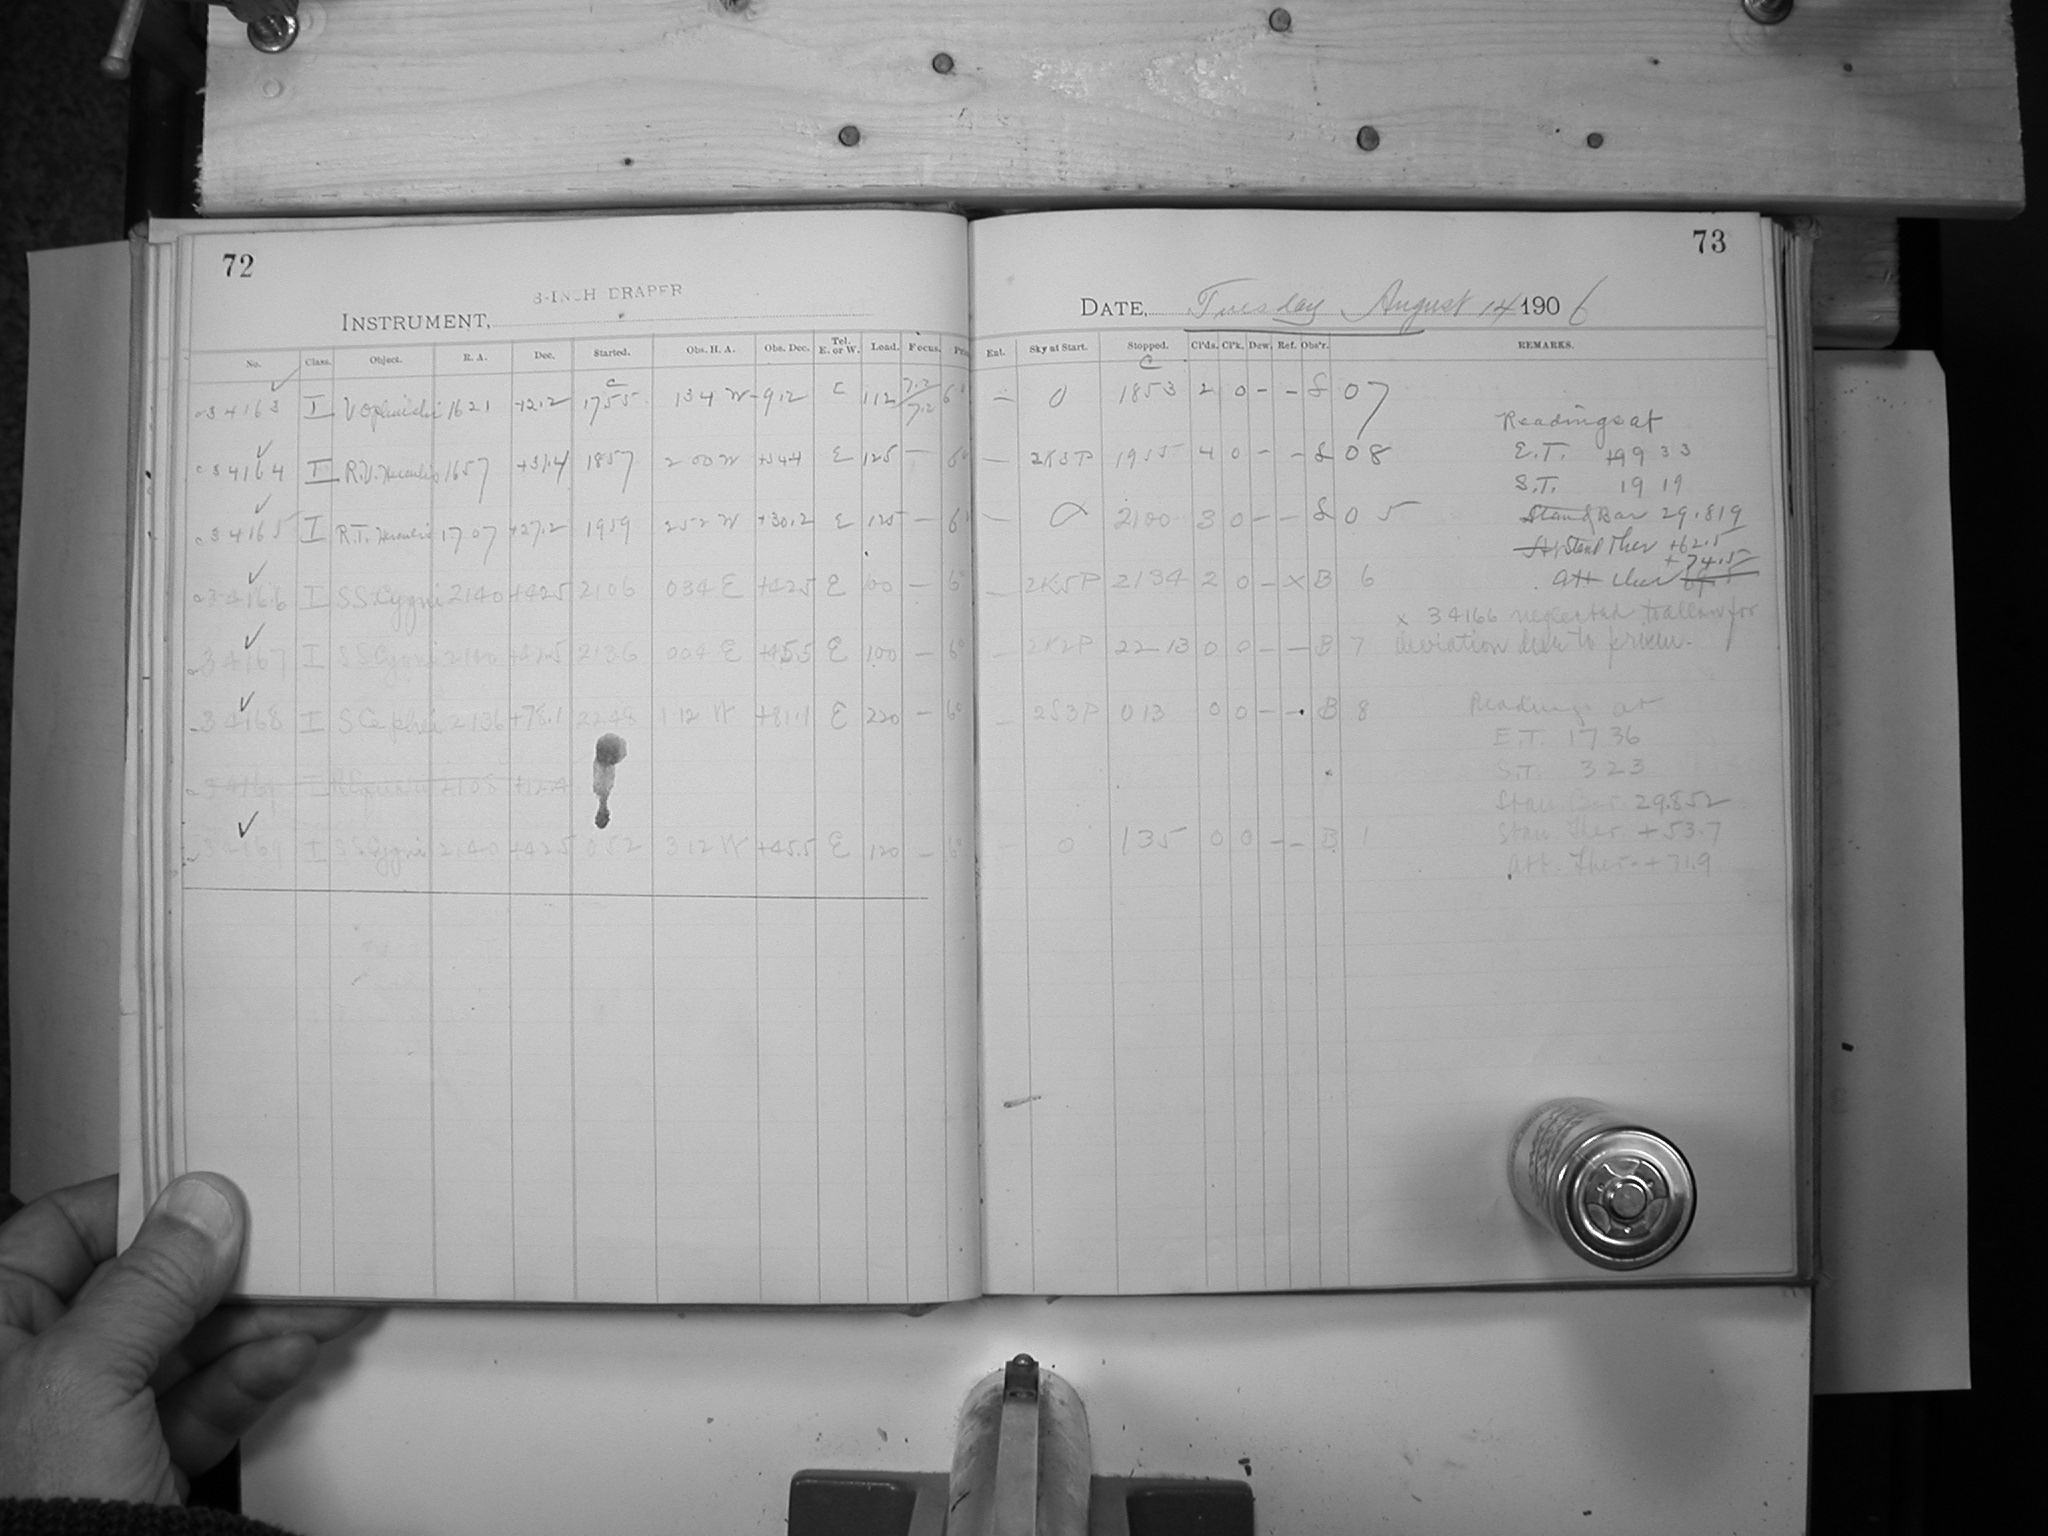 72
8-INCH DRAPER
INSTRUMENT,
No. Class. Object. R. A. Dec. Started. Obs. H. A. Obs. Dec. Tel. E. or W. Load. Focus.
34163 I V Ophiuchi 1621 -12.2 1755 134 W -9.12 E 112 7.2 6°
c 34164 I R.V. Herculis 1657 +31.4 1857 2 00 W +34.4 E 125 — 6°
c 34165 I R.T. Herculis 1707 +27.2 1959 252 W +30.2 E 125 — 6°
c 34166 I SS Cygni 2140 +42.5 2106 034 E +42.5 E 100 — 6°
c 34167 I SS Cygni 2140 +42.5 2136 004 E +45.5 E 100 — 6°
34168 I S Cephei 2136 +78.1 2248 1 12 W +81.1 E 220 — 6°
c 34169 I 2108 +12.4
34169 I SS Cygni 2140 +42.5 052 3 12 W +45.5 E 120 — 6°
73
DATE, Tuesday August 14 1906
Ent. Sky at Start. Stopped. Cl'ds. Cl'k. Dew. Ref. Obs'r. REMARKS.
— 0 1853 2 0 - - S 07
— 2K3P 1955 4 0 - - S 08
— 2100 3 0 - - S 05
2K5P 2134 2 0 - x B 6
— 2K2P 22 13 0 0 - — B 7
— 2S3P 013 0 0 - - B 8
— 0 135 0 0 - - B 1
Readings at
E.T. 9 33
S.T. 19 19
Stand Bar 29.819
Stand Ther +62.5
+74.5
Att ther
x 34166 neglected to allow for
deviation due to prism.
Readings at
E.T. 17 36
S.T. 3 23
Stan. Bar. 29.852
Stan. Ther. +53.7
Att. Ther. +71.9